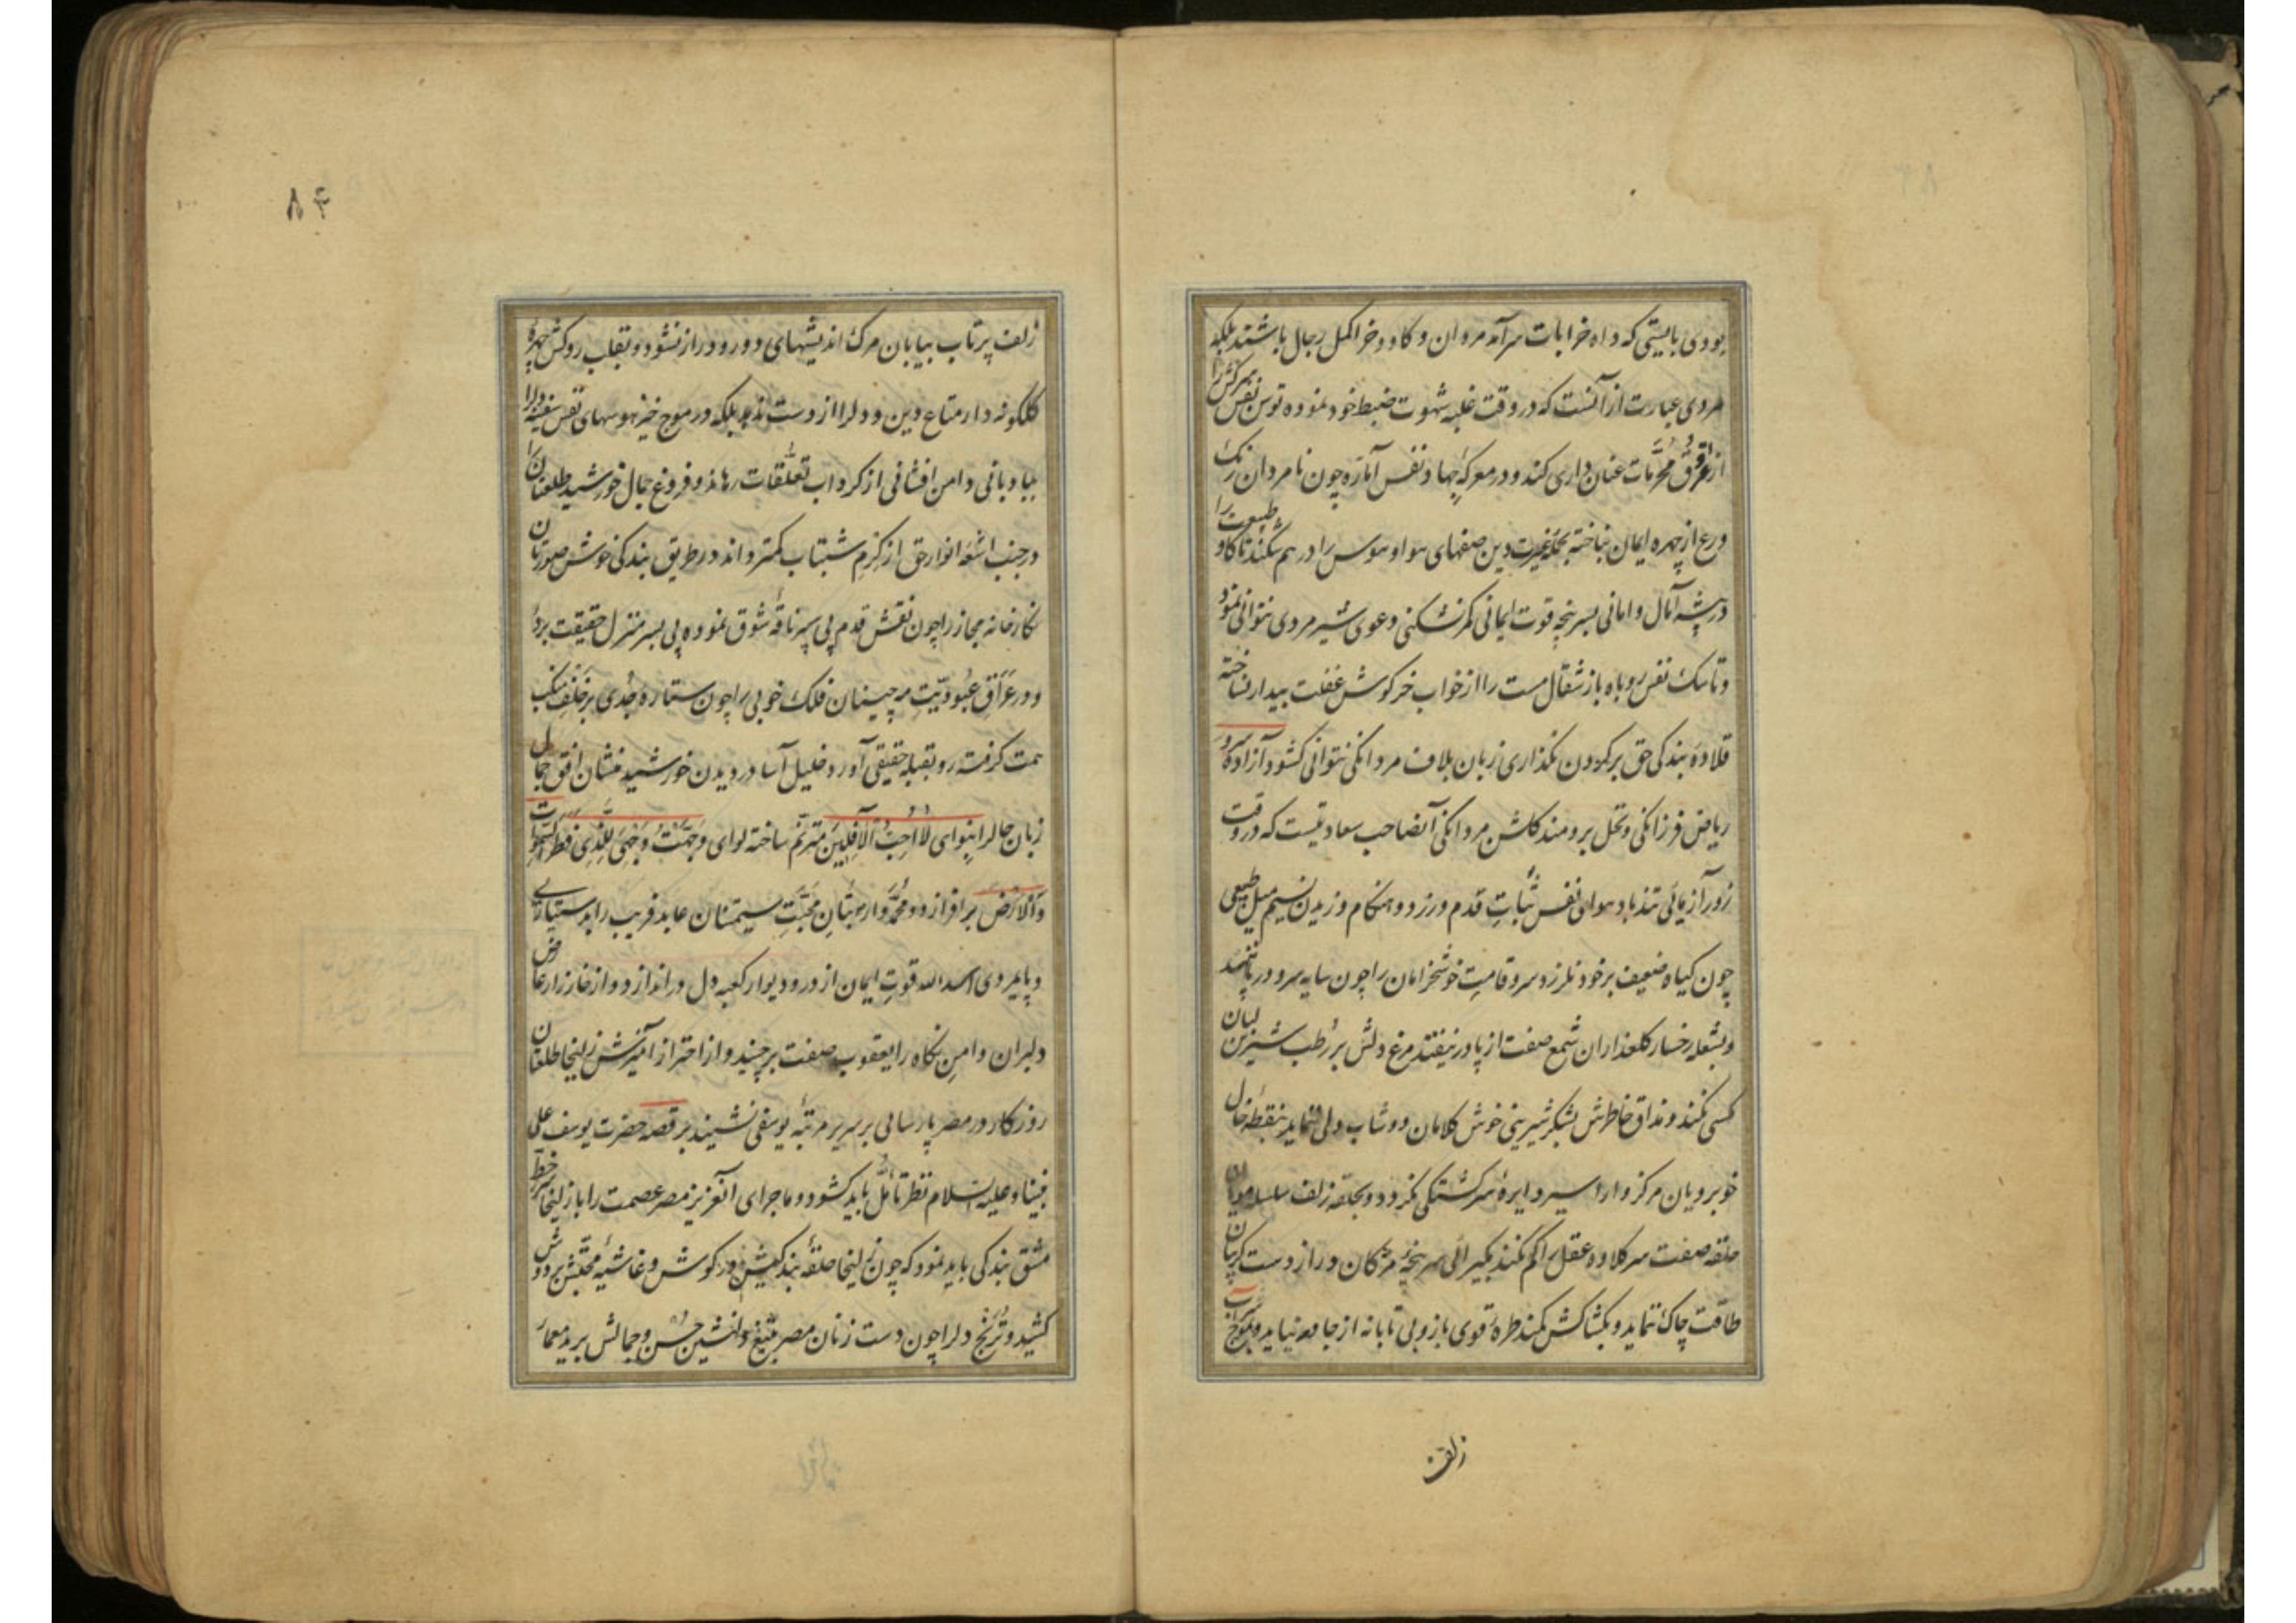 بودی بایستی که دواب خرابات سرآمد مردان و کاو و خر اکمل رجال باشند بلکه
مردی عبارت از آنست که در وقت غلبه شهوت ضبط خود نموده توسن نفس سرکش را
از طُرُقِ مُحَرَّمات عنان داری کند و در معرکهٔ جهاد نفس امّاره چون نامردان رنک
ورع از چهره ایمان نباخته بحملهٔ غیرت دین صفهای هوا و هوس را در هم شکند تا کاو طبیعت را
در بیشهٔ آمال و امانی بسرپنجه قوت ایمانی کمر نشکنی دعوی شیر مردی نتوانی نمود
و تا سک نفس روباه باز شقال مست را از خواب خرکوش غفلت بیدار نساخته
قلادهٔ بندکی حق بر کردن نکذاری زبان بلاف مردانکی نتوانی کشود آزاده سرو
ریاض فرزانکی و نخل برومند کلشن مردانکی آنصاحب سعادتیست که در وقت
زور آزمائی تندباد هوای نفس ثباتِ قدم ورزد و هنکام وزیدن نسیم میل طبیعی
چون کیاه ضعیف بر خود نلرزد سرو قامتِ خوشخرامان را چون سایه سرو در پا نیفتد
و بشعله رخسار کلعذاران شمع صفت از پا در نیفتد مرغ دلش بر رطب شیرین لبان
مکسی نکند و مذاق خاطرش بشکر شیرینی خوش کلامان دوشاب دلی ننماید بنقطهٔ خال
خوبرویان مرکز وار اسیر دایرهٔ سرکشتکی نکردد و بحلقه زلف سلسله مویان
حلقه صفت سر کلاوه عقل را کم نکند بکیرائی سرپنجهٔ مژکان دراز دست کریبان
طاقت چاک ننماید و بکشاکش کمند طرهٔ قوی بازو بی تابانه از جا در نیاید و بموج سراب
زلف
۸۴
زلف پرتاب بیابان مرک اندیشهای دور و دراز نشود و تقلب روکش چهرهٔ
کلکونه دار متاع دین و دلرا از دست ندهد بلکه در موج خیز هوسهای نفس سفینهٔ دلرا
ببادبانی دامن افشانی از کرداب تعلّقات رهاند و فروغ جمال خورشید طلعتان را
در جنب اشعهٔ انوار حق از کِرْمِ شبتاب کمتر داند در طریق بندکی خوش صورتان
نکارخانه مجاز را چون نقش قدم پی سپر ناقهٔ شوق نموده پی بسر منزل حقیقت بردهٔ
و در عراقِ عبودیّتِ مه جبینان فلک خوبی را چون ستاره جُدی بر خَلْفِ مَنکب
همت کرفته رو بقبله حقیقی آورد خلیل آسا در دیدن خورشید منشان افق جمال
زبان حال را بنوای لَا اُحِبُّ الْآفِلِینَ مترنّم ساخته لوای وَجَّهْتُ وَجْهِیَ لِلَّذِی فَطَرَ السَّمٰوَاتِ
وَالْاَرْضَ برافرازد و محمّد وار بتانِ محبّتِ سیمتنان عابد فریب را بدستیاری
و پایمردی اسد الله قوتِ ایمان از در و دیوار کعبه دل در اندازد و از خارزار عارض
دلبران دامنِ نکاه را یعقوب صفت برچیند و از احتراز آمیزش زلیخا طلعتان
روزکار در مصر پارسائی بر سریر مرتبهٔ یوسفی نشیند بر قصه حضرت یوسف علی
نبینا و علیه السلام نظر تأمّل باید کشود و ماجرای آنعزیز مصر عصمت را با زلیخا سرخط
مشق بندکی باید نمود که چون زلیخا حلقهٔ بندکیش در کوش و غاشیهٔ محبّتش بر دوش
کشید و تُرَنْج دلرا چون دست زنان مصر بتیغ دلنشین حُسن و جمالش برید معمار